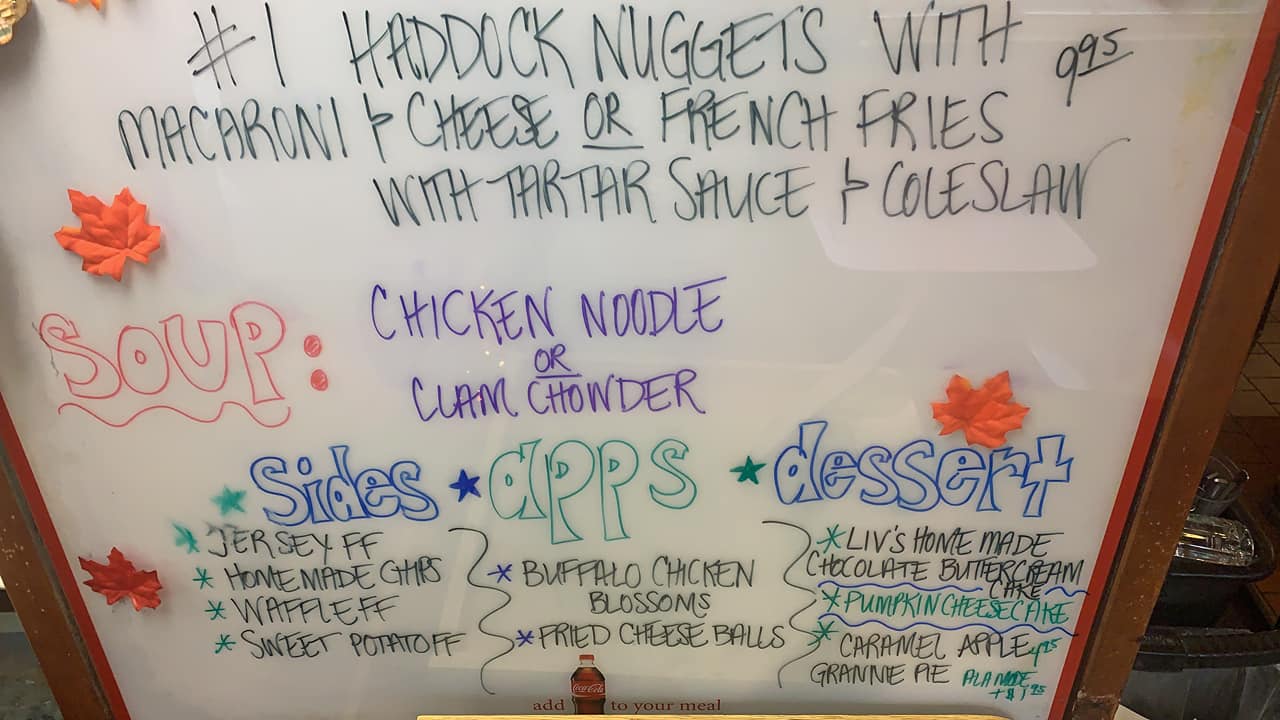 #1 HADDOCK NUGGETS WITH 9.95
MACARONI & CHEESE OR FRENCH FRIES
WITH TARTAR SAUCE & COLESLAW
SOUP:
CHICKEN NOODLE
OR
CLAM CHOWDER
Sides
apps
dessert
JERSEY FF
HOMEMADE CHIPS
WAFFLE FF
SWEET POTATO FF
BUFFALO CHICKEN
BLOSSOMS
FRIED CHEESE BALLS
LIV'S HOME MADE
CHOCOLATE BUTTERCREAM
CAKE
PUMPKIN CHEESECAKE
CARAMEL APPLE
GRANNIE PIE ALA MODE
+$1.95
Coca-Cola
add to your meal